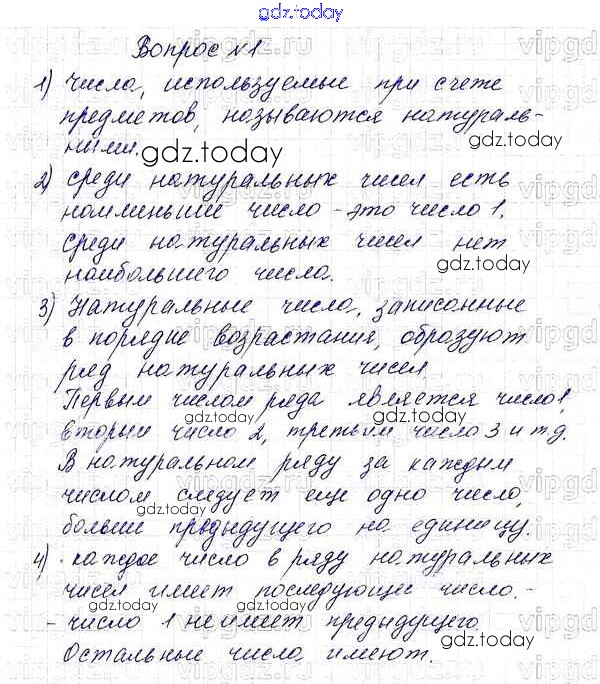 gdz.today
Вопрос №1
1) числа, используемые при счете
предметов, называются натураль-
ными.
2) среди натуральных чисел есть
наименьшее число - это число 1.
Среди натуральных чисел нет
наибольшего числа.
3) Натуральные числа, записанные
в порядке возрастания, образуют
ряд натуральных чисел.
Первым числом ряда является число 1,
вторым число 2, третьим число 3 и т.д.
В натуральном ряду за каждым
числом следует еще одно число,
больше предыдущего на единицу.
4) · каждое число в ряду натуральных
чисел имеет последующее число. -
- число 1 не имеет предыдущего.
Остальные числа имеют.
gdz.today
gdz.today
gdz.today
gdz.today
gdz.today
gdz.today
gdz.today
gdz.today